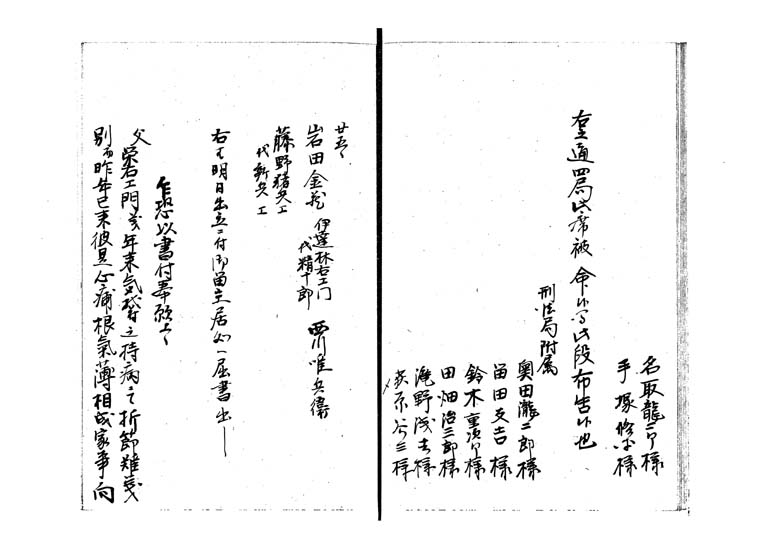 名取龍二郎様
手塚修平様
右之通四局出席被 命候間此段布告候也
刑法局附属
奥田瀧二郎様
畄田友吉様
鈴木重次郎様
田畑治三郎様
滝野浅吉様
萩原谷三様
廿五日
岩田金蔵 伊達林右エ門
代精十郎 西川唯兵衛
藤野猪兵エ
代新兵エ
右者明日出立ニ付御畄主居如一屈書出ー
乍恐以書付奉願上候
父栄右エ門義年来気之持病ニ而折節難義
別而昨年已来彼是心痛根氣薄相成家事向